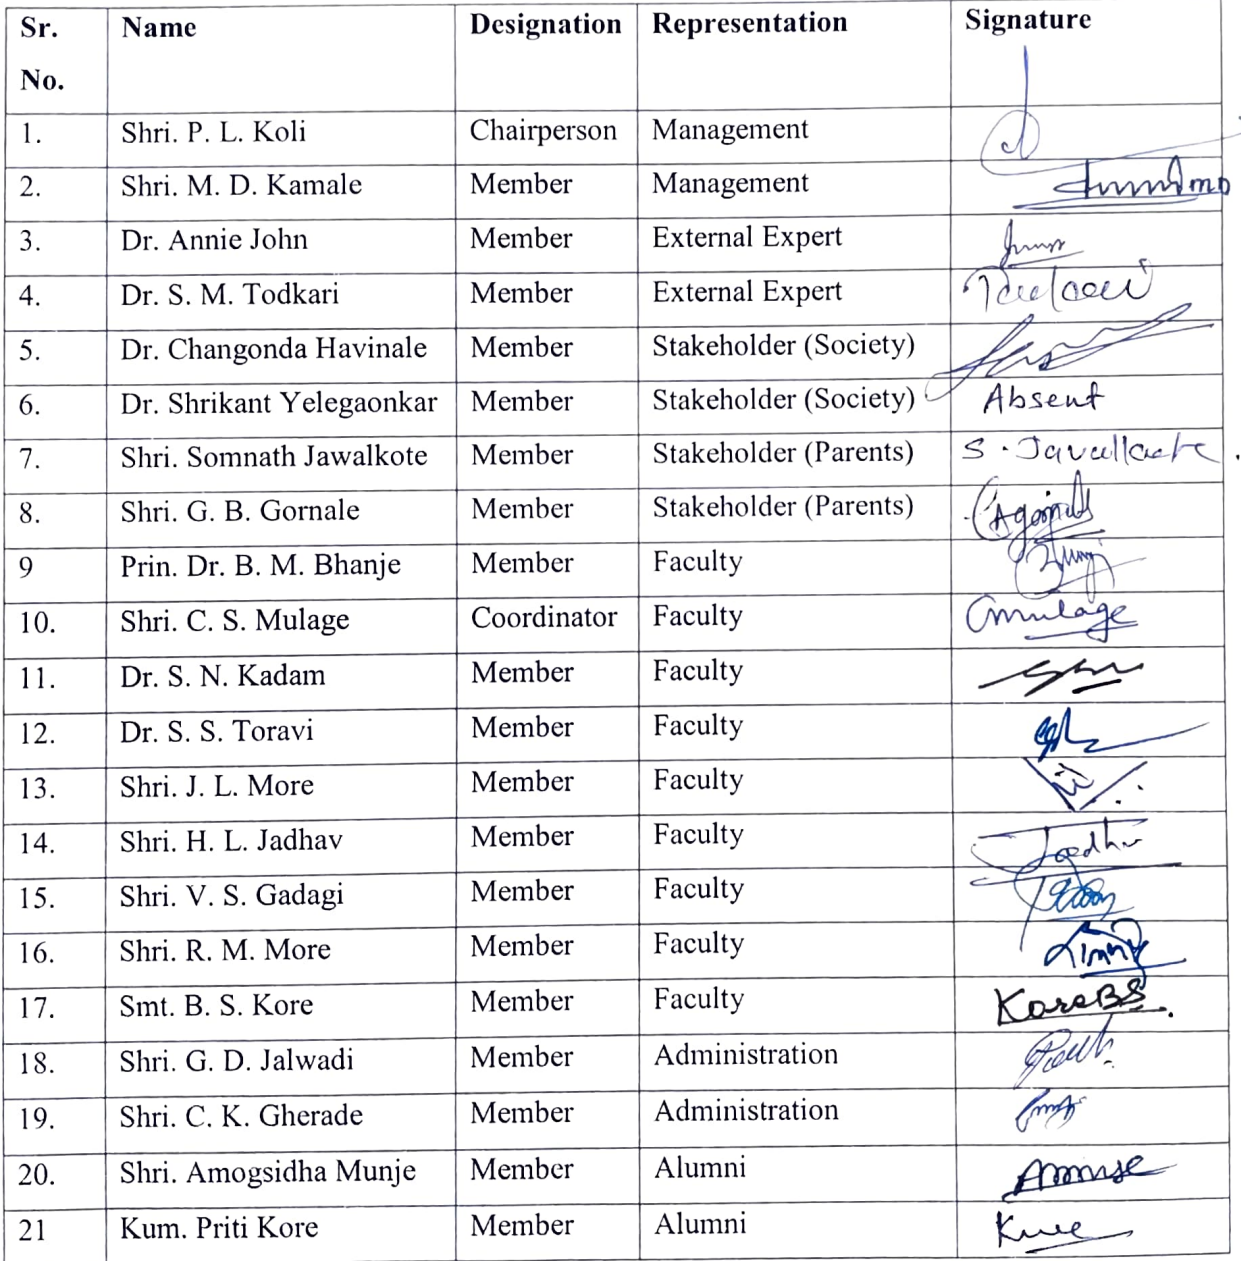 Sr. No. Name Designation Representation Signature
1. Shri. P. L. Koli Chairperson Management
2. Shri. M. D. Kamale Member Management
3. Dr. Annie John Member External Expert
4. Dr. S. M. Todkari Member External Expert
5. Dr. Changonda Havinale Member Stakeholder (Society)
6. Dr. Shrikant Yelegaonkar Member Stakeholder (Society) Absent
7. Shri. Somnath Jawalkote Member Stakeholder (Parents)
8. Shri. G. B. Gornale Member Stakeholder (Parents)
9 Prin. Dr. B. M. Bhanje Member Faculty
10. Shri. C. S. Mulage Coordinator Faculty Cmulage
11. Dr. S. N. Kadam Member Faculty
12. Dr. S. S. Toravi Member Faculty
13. Shri. J. L. More Member Faculty
14. Shri. H. L. Jadhav Member Faculty
15. Shri. V. S. Gadagi Member Faculty
16. Shri. R. M. More Member Faculty
17. Smt. B. S. Kore Member Faculty KoreBS.
18. Shri. G. D. Jalwadi Member Administration
19. Shri. C. K. Gherade Member Administration
20. Shri. Amogsidha Munje Member Alumni
21 Kum. Priti Kore Member Alumni